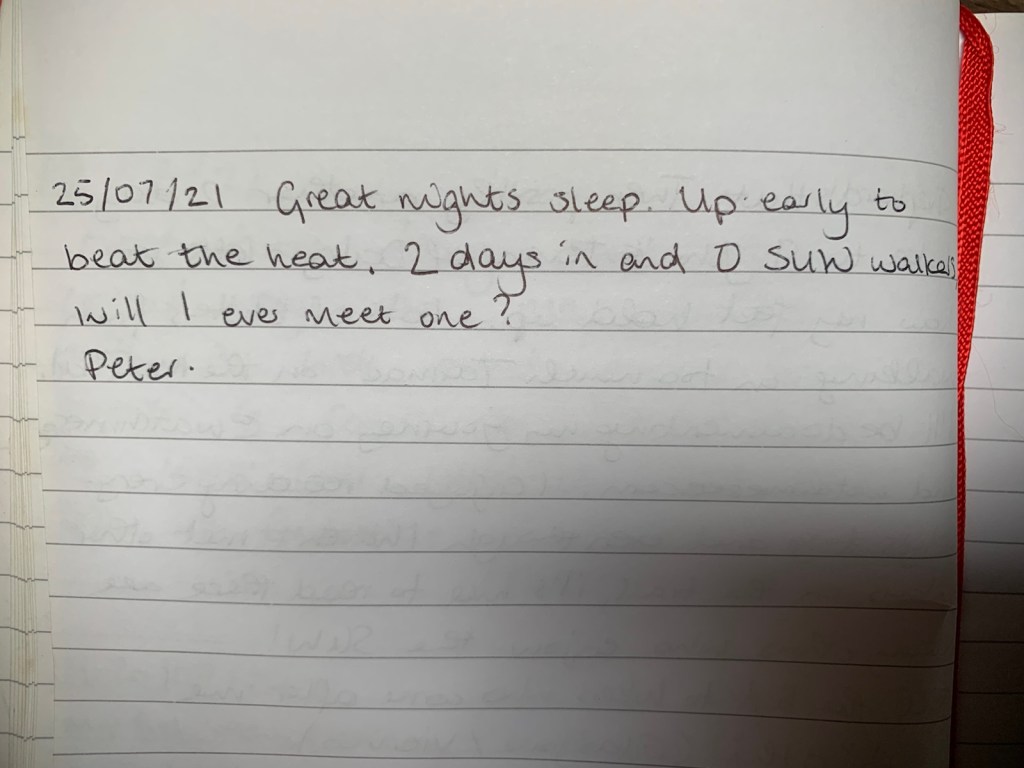 25/07/21 Great nights sleep. Up early to
beat the heat. 2 days in and 0 SUW walkers
will I ever meet one?
Peter.